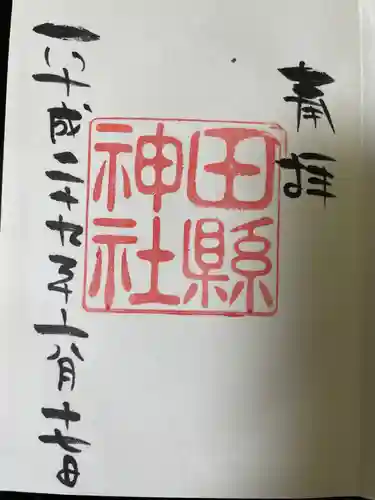 奉拝
田縣
神社
平成二十九年六月十七日